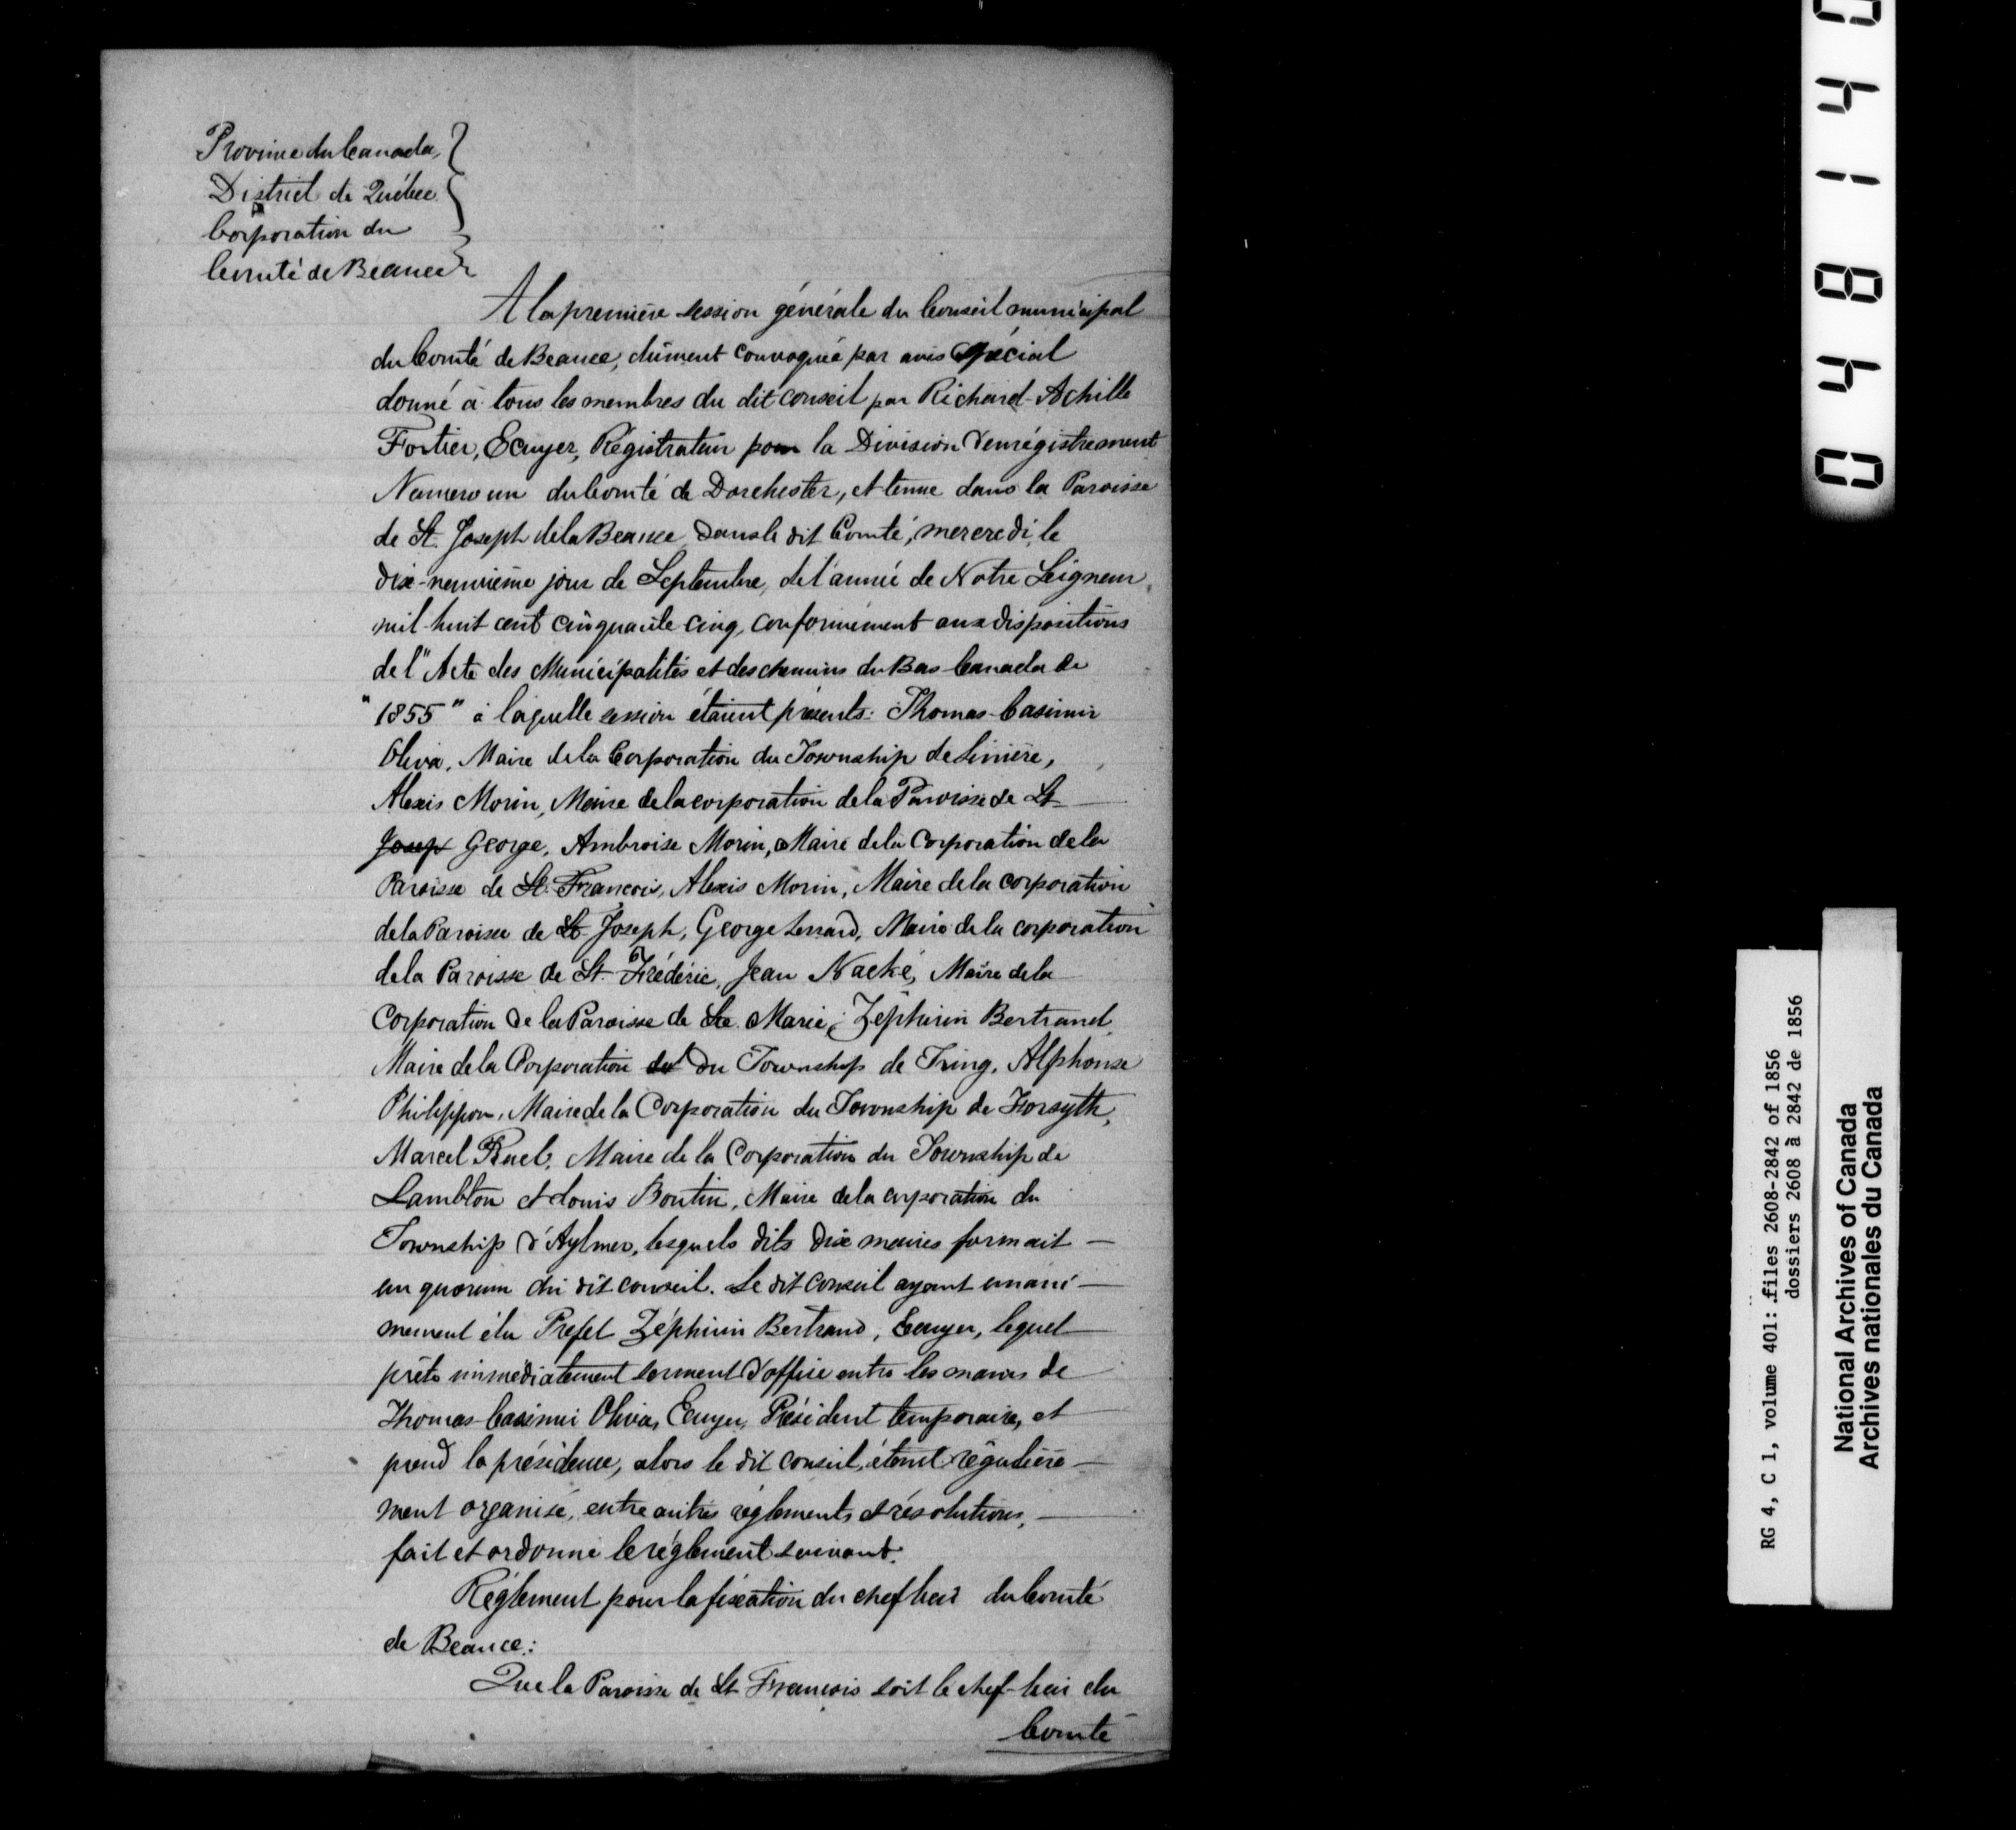 Province du Canada,
District de Québec
Corporation du
Comté de Beauce
A la première session générale du Conseil municipal
du Comté de Beauce, dûment convoquée par avis spécial
donné à tous les membres du dit conseil par Richard-Achille
Fortier, Ecuyer, Régistrateur pour la Division d'enrégistrement
Numero un du Comté de Dorchester, et tenue dans la Paroisse
de St. Joseph de la Beauce dans le dit Comté, mercredi, le
dix-neuvième jour de Septembre, de l'année de Notre Seigneur
mil-huit cent cinquante cinq, conformément aux dispositions
de l'"Acte des Municipalités et des chemins du Bas Canada de
"1855" à laquelle session étaient présents: Thomas-Casimir
Oliva, Maire de la Corporation du Township de Linière,
Alexis Morin, Maire de la corporation de la Paroisse de St
Josep George, Ambroise Morin, Maire de la Corporation de la
Paroisse de St. François, Alexis Morin, Maire de la corporation
de la Paroisse de St. Joseph, George Lessard, Maire de la corporation
de la Paroisse de St. Frédéric, Jean Nacké, Maire de la
Corporation de la Paroisse de Ste. Marie, Zéphirin Bertrand,
Maire de la Corporation du Township de Tring, Alphonse
Philippon, Maire de la Corporation du Township de Forsyth,
Marcel Ruel, Maire de la Corporation du Township de
Lambton et Louis Boutin, Maire de la corporation du
Township d'Aylmer, lesquels dits dix maires formait —
un quorum du dit conseil. Le dit Conseil ayant unani —
mement élu Prefet Zéphirin Bertrand, Ecuyer, lequel
prête immédiatement serment d'office entre les mains de
Thomas-Casimir Oliva, Ecuyer, Président temporaire, et
prend la présidence, alors le dit conseil, étant régulière —
ment organisé, entre autres réglements et résolutions, —
fait et ordonne le réglement suivant.
Réglement pour la fixation du chef lieu du Comté
de Beauce:
Que la Paroisse de St François soit le chef-lieu du
Comté
04814
RG 4, C 1, volume 401: files 2608-2842 of 1856
dossiers 2608 à 2842 de 1856
National Archives of Canada
Archives nationales du Canada